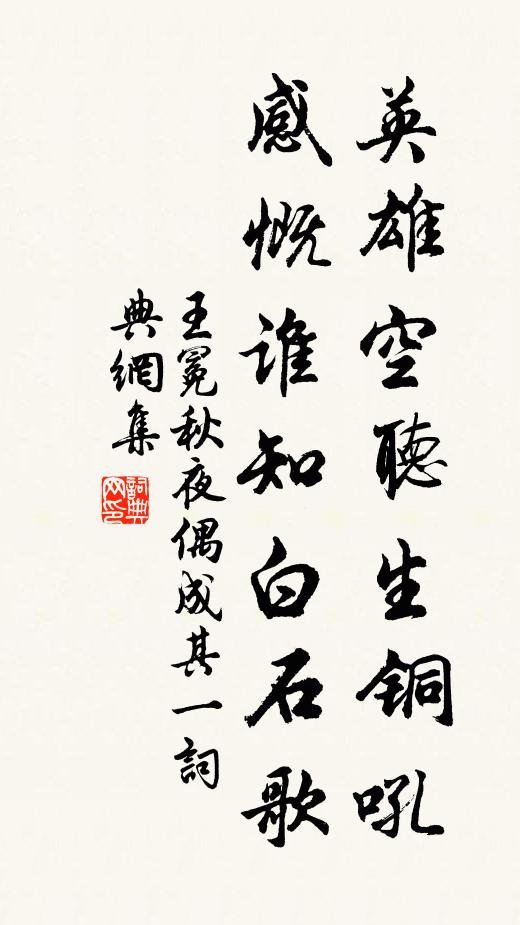 英雄空聽生铜吼
感慨谁知白石歌
王冕秋夜偶成其一詞
典網集
詞典网印